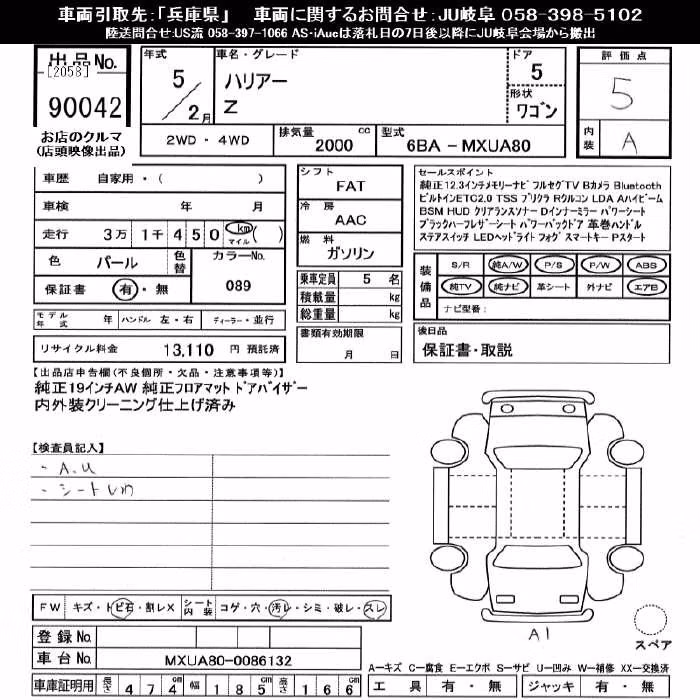 車両引取先:「兵庫県」 車両に関するお問合せ:JU岐阜 058-398-5102
陸送問合せ:US流 058-397-1066 AS-iAucは落札日の7日後以降にJU岐阜会場から搬出
出品No.
[2058]
90042
お店のクルマ
(店頭映像出品)
年式
5/2月
車名・グレード
ハリアー
Z
ドア
5
形状
ワゴン
2WD・4WD
排気量 2000 cc
型式 6BA-MXUA80
評価点
5
内装 A
車歴 自家用・( )
車検 年 月
走行 3万 1千 450 km マイル ( )
色 パール 色替 カラーNo.
089
保証書 有・無
モデル年式 年 ハンドル 左・右 ディーラー・並行
リサイクル料金 13,110 円 預託済
シフト
FAT
冷房
AAC
燃料
ガソリン
乗車定員 5 名
積載量 kg
総重量 kg
書類有効期限
月 日
セールスポイント
純正12.3インチメモリーナビ フルセグTV Bカメラ Bluetooth
ビルトインETC2.0 TSS プリクラ Rクルコン LDA Aハイビーム
BSM HUD クリアランスソナー Dインナーミラー パワーシート
ブラックハーフレザーシート パワーバックドア 革巻ハンドル
ステアスイッチ LEDヘッドライト フォグ スマートキー Pスタート
装備品
S/R 純A/W P/S P/W ABS
純TV 純ナビ 革シート 外ナビ エアB
ナビ型番:
後日品
保証書・取説
【出品店申告欄(不良個所・欠品・注意事項等)】
純正19インチAW 純正フロアマット ドアバイザー
内外装クリーニング仕上げ済み
【検査員記入】
- A.U
- シート
FW キズ・トビ石・割レX シート内装 コゲ・穴・汚レ・シミ・破レ・スレ
登録No.
車台No. MXUA80-0086132
車庫証明用 長さ 474cm 幅 185cm 高さ 166cm
A1
スペア
A―キズ C―腐食 E―エクボ S―サビ U―凹み W―補修 XX―交換済
工具 有・無 ジャッキ 有・無